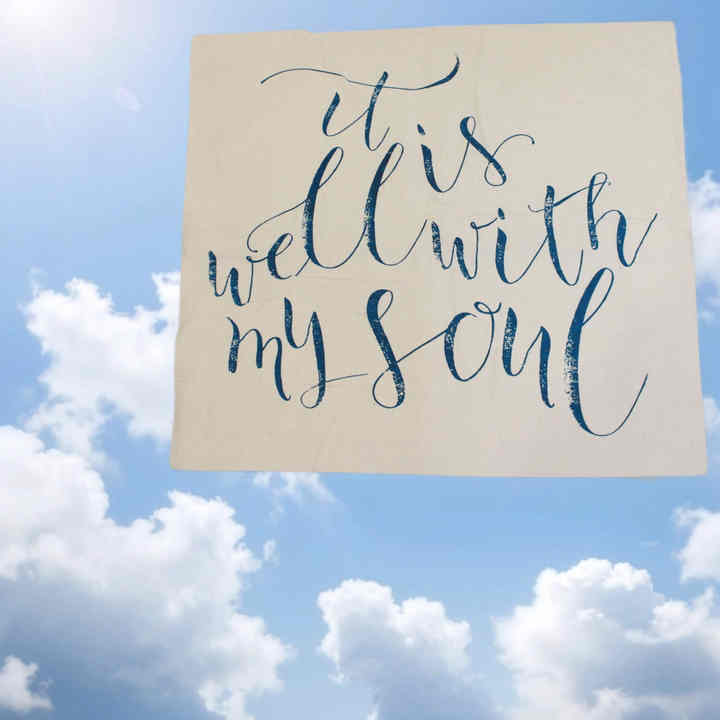 it is
well with
my soul